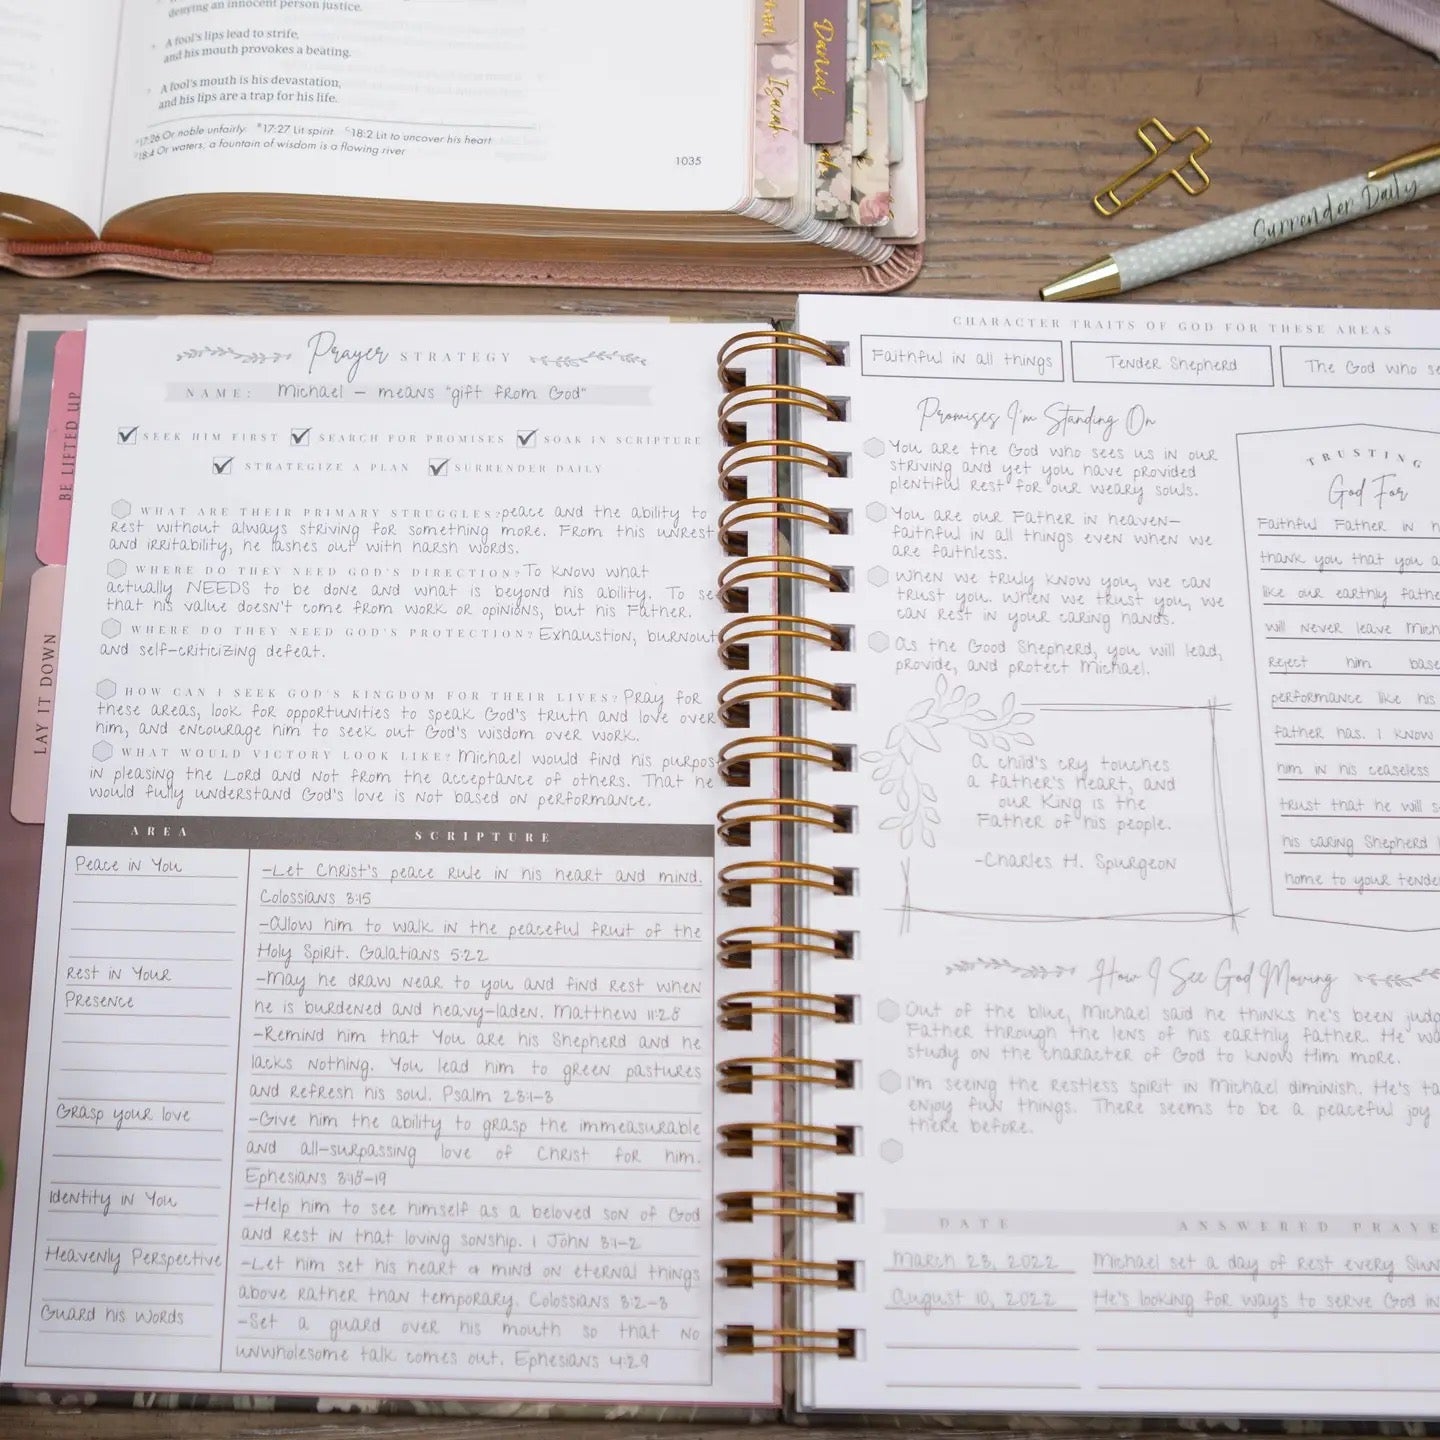 denying an innocent person justice.
A fool's lips lead to strife,
and his mouth provokes a beating.
A fool's mouth is his devastation,
and his lips are a trap for his life.
17:26 Or noble unfairly 17:27 Lit spirit 18:2 Lit to uncover his heart
18:4 Or waters; a fountain of wisdom is a flowing river
1035
Isaiah
Daniel
Surrender Daily
BE LIFTED UP
LAY IT DOWN
Prayer STRATEGY
NAME: Michael – means "gift from God"
SEEK HIM FIRST SEARCH FOR PROMISES SOAK IN SCRIPTURE
STRATEGIZE A PLAN SURRENDER DAILY
WHAT ARE THEIR PRIMARY STRUGGLES? peace and the ability to
rest without always striving for something more. From this unrest
and irritability, he lashes out with harsh words.
WHERE DO THEY NEED GOD'S DIRECTION? To know what
actually NEEDS to be done and what is beyond his ability. To se
that his value doesn't come from work or opinions, but his Father.
WHERE DO THEY NEED GOD'S PROTECTION? Exhaustion, burnout
and self-criticizing defeat.
HOW CAN I SEEK GOD'S KINGDOM FOR THEIR LIVES? Pray for
these areas, look for opportunities to speak God's truth and love over
him, and encourage him to seek out God's wisdom over work.
WHAT WOULD VICTORY LOOK LIKE? Michael would find his purpos
in pleasing the Lord and not from the acceptance of others. That he
would fully understand God's love is not based on performance.
AREA SCRIPTURE
Peace in You
-Let Christ's peace rule in his heart and mind.
Colossians 3:15
-Allow him to walk in the peaceful fruit of the
Holy Spirit. Galatians 5:22
Rest in Your
Presence
-May he draw near to you and find rest when
he is burdened and heavy-laden. Matthew 11:28
-Remind him that You are his Shepherd and he
lacks nothing. You lead him to green pastures
and refresh his soul. Psalm 23:1-3
Grasp your love
-Give him the ability to grasp the immeasurable
and all-surpassing love of Christ for him.
Ephesians 3:18-19
Identity in You
-Help him to see himself as a beloved son of God
and rest in that loving sonship. 1 John 3:1-2
Heavenly Perspective
-Let him set his heart & mind on eternal things
above rather than temporary. Colossians 3:2-3
Guard his words
-Set a guard over his mouth so that no
unwholesome talk comes out. Ephesians 4:29
CHARACTER TRAITS OF GOD FOR THESE AREAS
Faithful in all things Tender Shepherd The God who se
Promises I'm Standing On
You are the God who sees us in our
striving and yet you have provided
plentiful rest for our weary souls.
You are our Father in heaven–
faithful in all things even when we
are faithless.
When we truly know you, we can
trust you. When we trust you, we
can rest in your caring hands.
As the Good Shepherd, you will lead,
provide, and protect Michael.
A child's cry touches
a father's heart, and
our King is the
Father of his people.
-Charles H. Spurgeon
TRUSTING
God For
Faithful Father in h
thank you that you a
like our earthly fathe
will never leave Mich
reject him base
performance like his
father has. I know
him in his ceaseless
trust that he will s
his caring Shepherd
home to your tende
How I See God Moving
Out of the blue, Michael said he thinks he's been judg
Father through the lens of his earthly father. He wa
study on the character of God to know Him more.
I'm seeing the restless spirit in Michael diminish. He's ta
enjoy fun things. There seems to be a peaceful joy
there before.
DATE ANSWERED PRAYE
March 23, 2022 Michael set a day of rest every Sun
August 10, 2022 He's looking for ways to serve God in